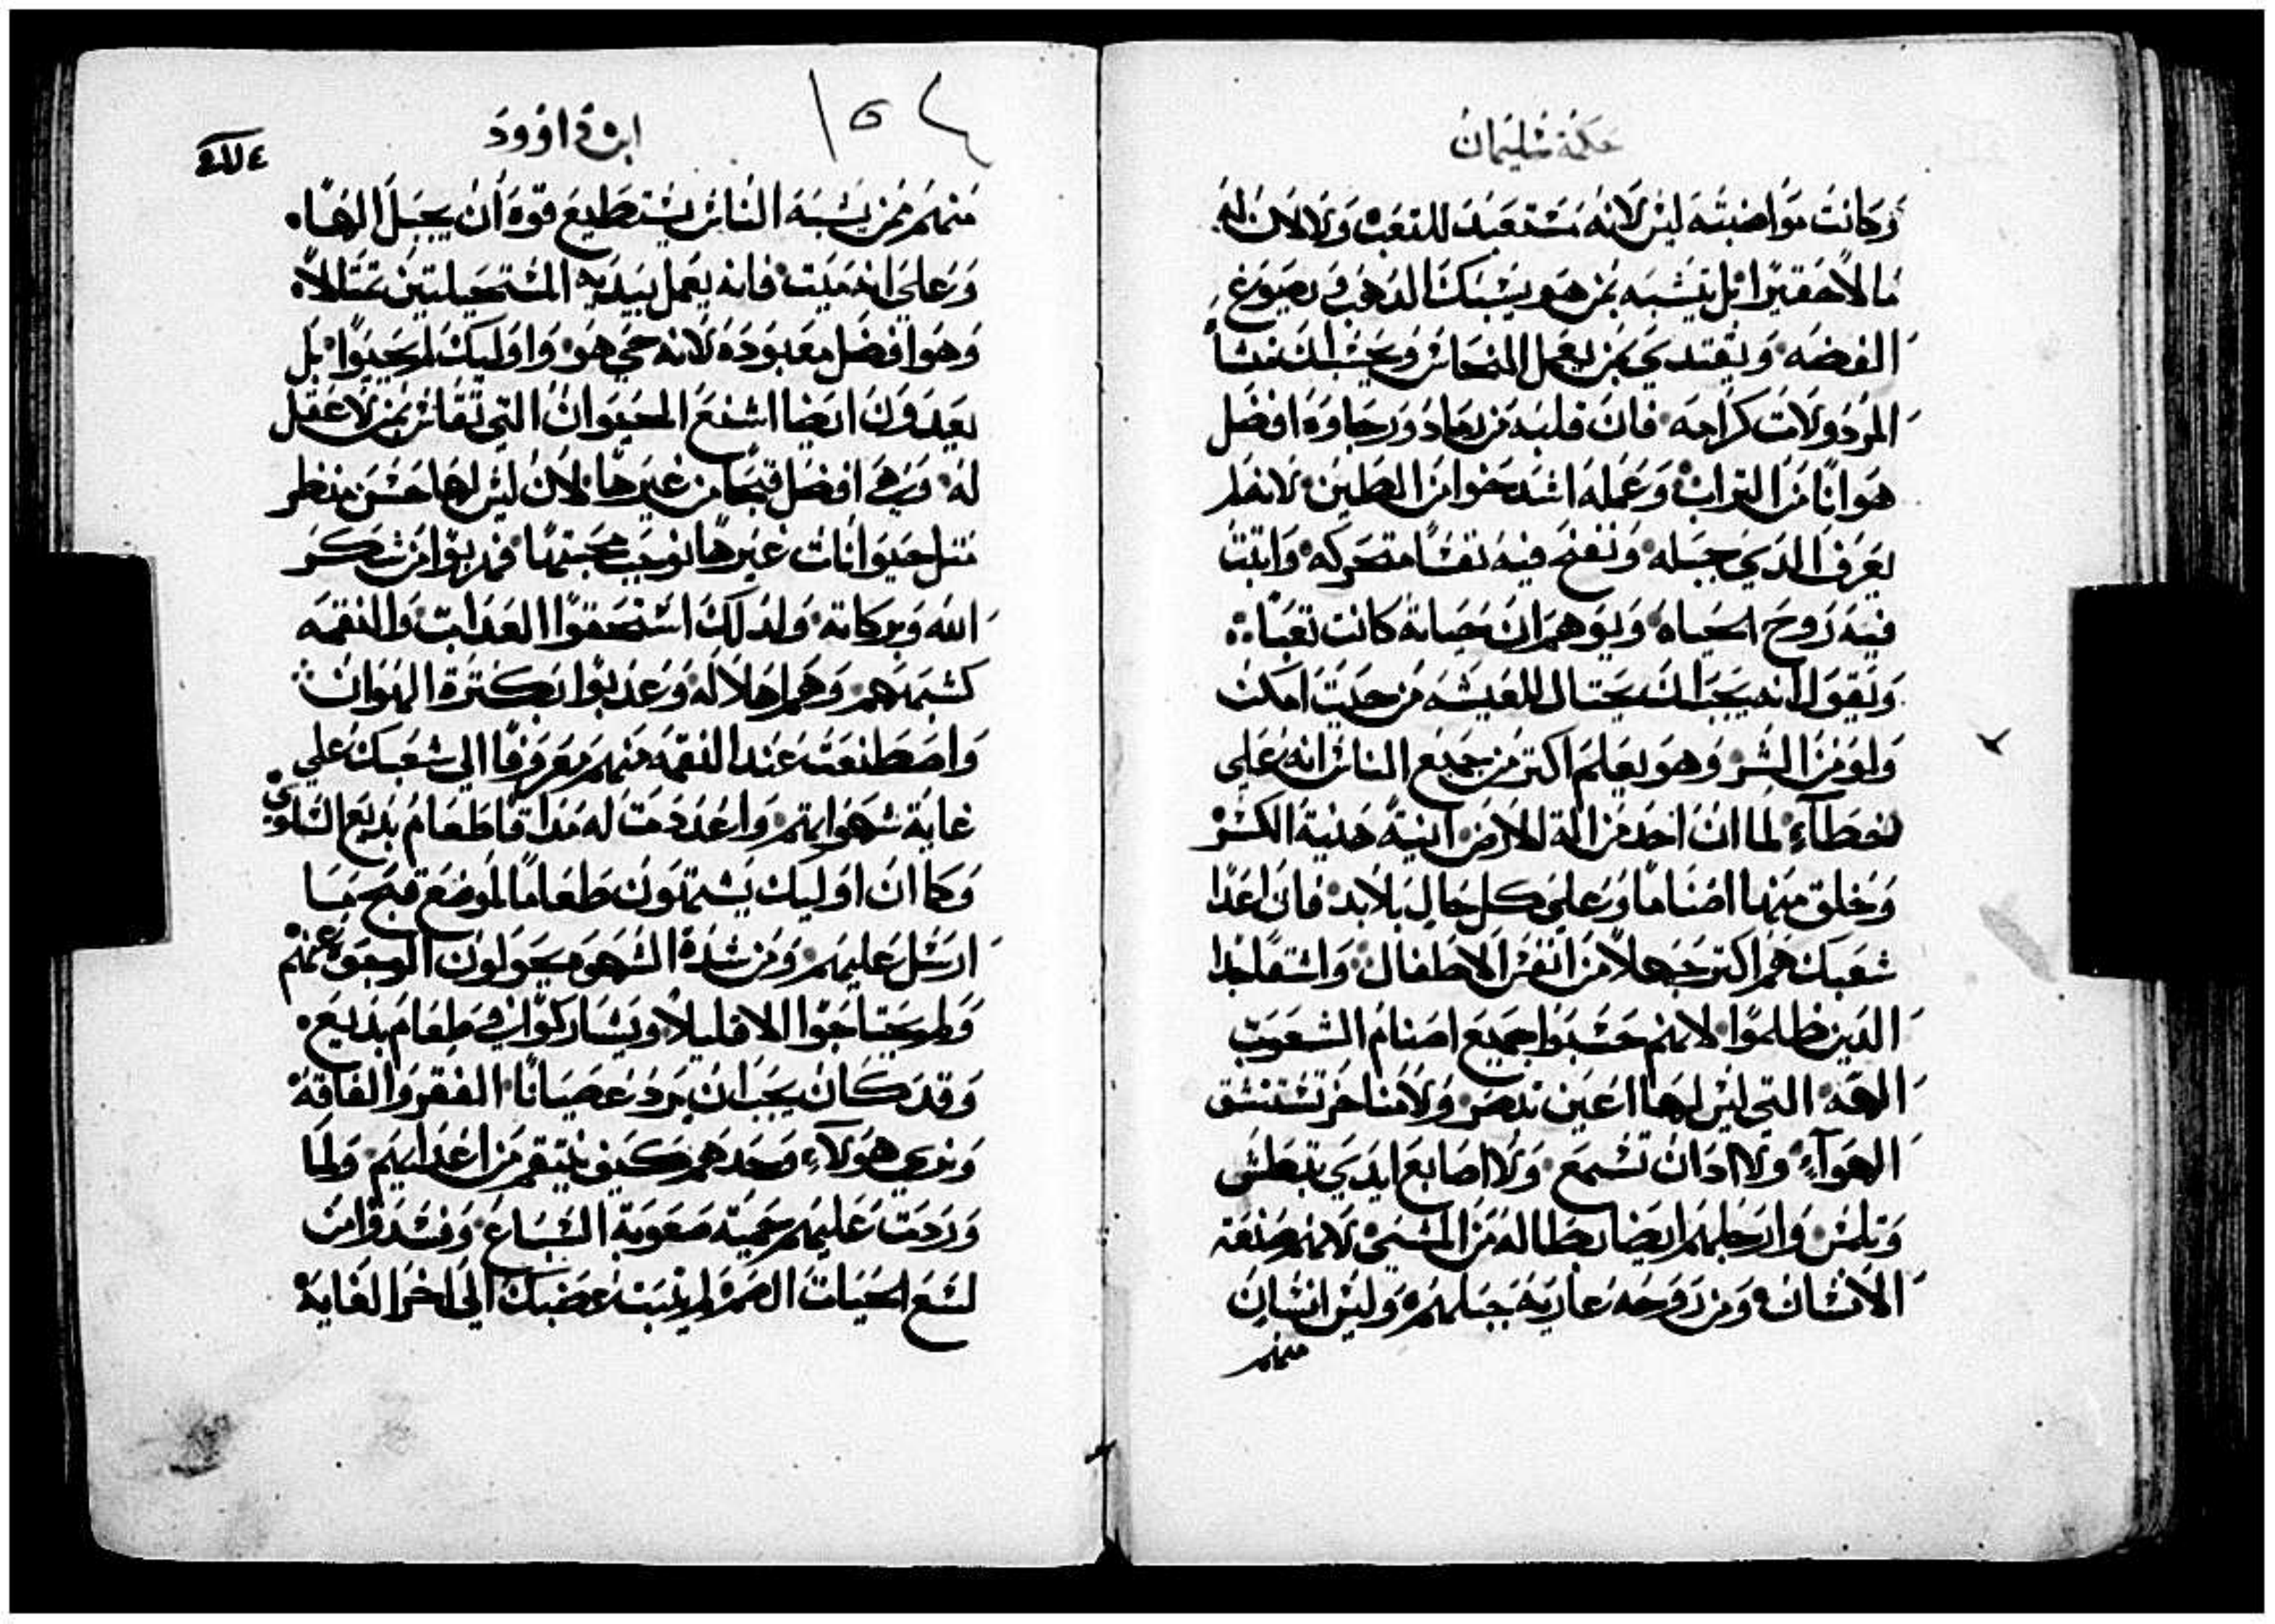 حكمة سليمان
وكانت مواضبته ليس لانه مستعبد للتعب ولا لان له
مالا حقيرا بل يتشبه بمن هو يسبك الدهب ويصوغ
الفضه ويقتدي بمن يعمل النحاس ويحسب ان منشا
المردولات كرامه فان قلبه من رماد ورجاوه افضل
هوانا من التراب وعمله اشد حموا من الطين لانه لم
يعرف الدي جبله ونفخ فيه نفسا متحركه واتبت
فيه روح الحياه ويوهم ان حياته كانت تعبا
ويقول انه يجب ان يحتال للعيشه من حيت امكن
ولو من الشر وهو يعلم اكتر من جميع الناس انه علي
خطآء لما ان اخد من الة الارض انية هنية الكسر
وخلق منها اصناما وعلي كل حال بلا بد فان اعدا
شعبك هم اكتر جهلا من انفس الاطفال واشقا جدا
الدين ظلموا لانهم حسبوا جميع اصنام الشعوب
الهه التي ليس لها اعين تبصر ولا مناخر تستنشق
الهوآء ولا ادان تسمع ولا اصابع ايدي تبطش
وتلمس وارجلهم ايضا بطاله من المشي لانهم صنعة
الانسان ومن روحه عاريه جبلهم وليس انسان
منهم
ابن داوود
١٥٤
منهم ممن يشبه الناس يستطيع قوه ان يجبل الها
وعلي انه ميت فانه يعمل بيديه المستحيلتين تمتالا
وهو افضل معبوده لانه حي هو واوليك لم يحيوا بل
يعبدون ايضا اشنع الحيوان التي تقاس بمن لا عقل
له وهي افضل قبحا من غيرها لان ليس لها حسن منظر
متل حيوانات غيرها توجب محبتها فهربوا من شكر
الله وبركاته ولدلك استحقوا العداب والنقمه
كشبههم وهم اهلا له وعدبوا بكترة الهوان
واصطنعت عند النقمه منهم معروفا الي شعبك علي
غاية شهواتهم واعددت له مداقا طعام بديع السلوي
وكما ان اوليك يشتهون طعاما لموضع قبح ما
ارسل عليهم ومن شدة الشهوه يحولون الوجوه عنهم
ولم يحتاجوا الا قليلا ويشاركوا في طعام بديع
وقد كان يجب ان يرد عصيانا الفقر والفاقه
ونري هولآء وحدهم كيف ينتقم من اعدايهم ولما
وردت عليهم حمية صعوبة السباع وفسدوا من
لسع الحيات الصم لم يتبت غضبك الي اخر الغاية